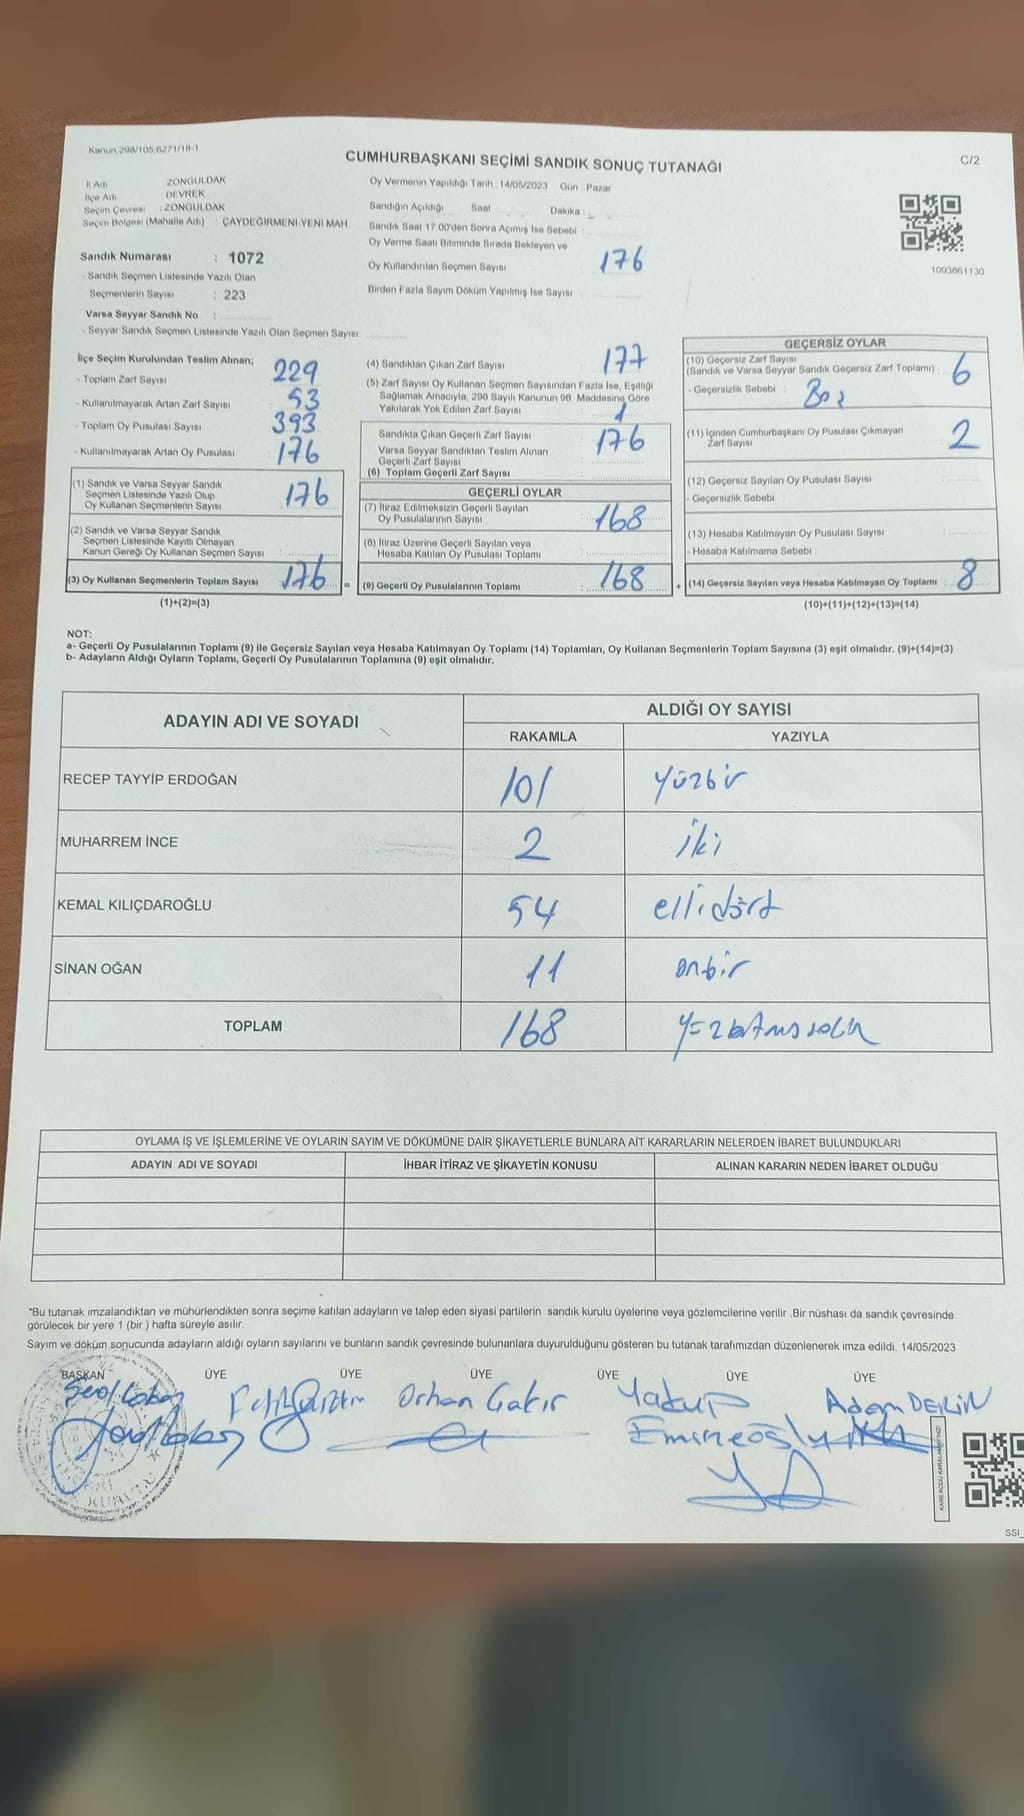 Kanun,298/105,6271/18-1
CUMHURBAŞKANI SEÇİMİ SANDIK SONUÇ TUTANAĞI
C/2
İl Adı ZONGULDAK
İlçe Adı DEVREK
Seçim Çevresi : ZONGULDAK
Seçim Bölgesi (Mahalle Adı) : ÇAYDEĞİRMENİ-YENİ MAH
Oy Vermenin Yapıldığı Tarih : 14/05/2023 Gün : Pazar
Sandığın Açıldığı Saat Dakika :
Sandık Saat 17.00'den Sonra Açımış İse Sebebi :
Oy Verme Saati Bitiminde Sırada Bekleyen ve
Oy Kullandırılan Seçmen Sayısı 176
Birden Fazla Sayım Döküm Yapılmış İse Sayısı
1093861130
Sandık Numarası : 1072
- Sandık Seçmen Listesinde Yazılı Olan
Seçmenlerin Sayısı : 223
Varsa Seyyar Sandık No :
- Seyyar Sandık Seçmen Listesinde Yazılı Olan Seçmen Sayısı:
İlçe Seçim Kurulundan Teslim Alınan;
- Toplam Zarf Sayısı 229
- Kullanılmayarak Artan Zarf Sayısı 53
- Toplam Oy Pusulası Sayısı 393
- Kullanılmayarak Artan Oy Pusulası 176
(1) Sandık ve Varsa Seyyar Sandık
Seçmen Listesinde Yazılı Olup
Oy Kullanan Seçmenlerin Sayısı 176
(2) Sandık ve Varsa Seyyar Sandık
Seçmen Listesinde Kayıtlı Olmayan
Kanun Gereği Oy Kullanan Seçmen Sayısı :
(3) Oy Kullanan Seçmenlerin Toplam Sayısı 176 =
(1)+(2)=(3)
(4) Sandıktan Çıkan Zarf Sayısı 177
(5) Zarf Sayısı Oy Kullanan Seçmen Sayısından Fazla İse, Eşitliği
Sağlamak Amacıyla, 298 Sayılı Kanunun 98. Maddesine Göre
Yakılarak Yok Edilen Zarf Sayısı 1
Sandıkta Çıkan Geçerli Zarf Sayısı 176
Varsa Seyyar Sandıktan Teslim Alınan
Geçerli Zarf Sayısı
(6) Toplam Geçerli Zarf Sayısı
GEÇERLİ OYLAR
(7) İtiraz Edilmeksizin Geçerli Sayılan
Oy Pusulalarının Sayısı 168
(8) İtiraz Üzerine Geçerli Sayılan veya
Hesaba Katılan Oy Pusulası Toplamı
(9) Geçerli Oy Pusulalarının Toplamı 168 +
GEÇERSİZ OYLAR
(10) Geçersiz Zarf Sayısı
(Sandık ve Varsa Seyyar Sandık Geçersiz Zarf Toplamı) : 6
- Geçersizlik Sebebi : Boş
(11) İçinden Cumhurbaşkanı Oy Pusulası Çıkmayan
Zarf Sayısı 2
(12) Geçersiz Sayılan Oy Pusulası Sayısı
- Geçersizlik Sebebi :
(13) Hesaba Katılmayan Oy Pusulası Sayısı
- Hesaba Katılmama Sebebi
(14) Geçersiz Sayılan veya Hesaba Katılmayan Oy Toplamı : 8
(10)+(11)+(12)+(13)=(14)
NOT:
a- Geçerli Oy Pusulalarının Toplamı (9) ile Geçersiz Sayılan veya Hesaba Katılmayan Oy Toplamı (14) Toplamları, Oy Kullanan Seçmenlerin Toplam Sayısına (3) eşit olmalıdır. (9)+(14)=(3)
b- Adayların Aldığı Oyların Toplamı, Geçerli Oy Pusulalarının Toplamına (9) eşit olmalıdır.
ADAYIN ADI VE SOYADI ALDIĞI OY SAYISI
RAKAMLA YAZIYLA
RECEP TAYYİP ERDOĞAN 101 yüzbir
MUHARREM İNCE 2 iki
KEMAL KILIÇDAROĞLU 54 ellidört
SİNAN OĞAN 11 onbir
TOPLAM 168
OYLAMA İŞ VE İŞLEMLERİNE VE OYLARIN SAYIM VE DÖKÜMÜNE DAİR ŞİKAYETLERLE BUNLARA AİT KARARLARIN NELERDEN İBARET BULUNDUKLARI
ADAYIN ADI VE SOYADI İHBAR İTİRAZ VE ŞİKAYETİN KONUSU ALINAN KARARIN NEDEN İBARET OLDUĞU
*Bu tutanak imzalandıktan ve mühürlendikten sonra seçime katılan adayların ve talep eden siyasi partilerin sandık kurulu üyelerine veya gözlemcilerine verilir .Bir nüshası da sandık çevresinde
görülecek bir yere 1 (bir ) hafta süreyle asılır.
Sayım ve döküm sonucunda adayların aldığı oyların sayılarını ve bunların sandık çevresinde bulunanlara duyurulduğunu gösteren bu tutanak tarafımızdan düzenlenerek imza edildi. 14/05/2023
BAŞKAN ÜYE ÜYE ÜYE ÜYE ÜYE ÜYE
Orhan Çakır Yakup Adem
SSI_